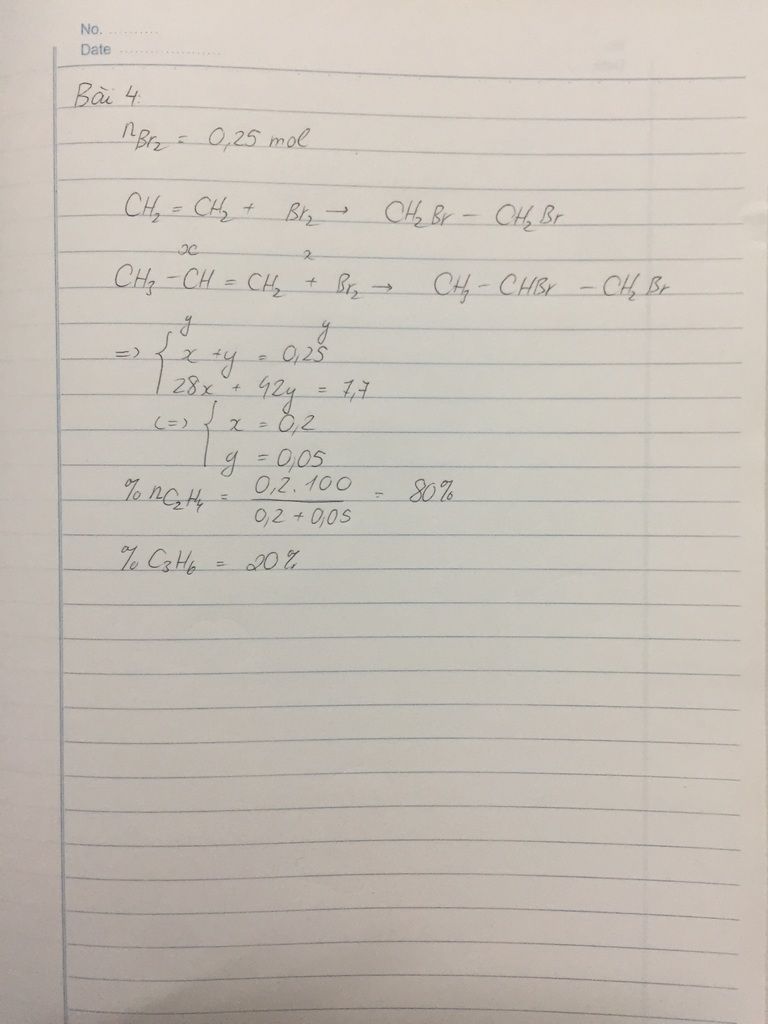 No. ..........
Date .....................
Bài 4:
nBr₂ = 0,25 mol
CH₂ = CH₂ + Br₂ → CH₂Br – CH₂Br
x x
CH₃ – CH = CH₂ + Br₂ → CH₃ – CHBr – CH₂Br
y y
=> { x + y = 0,25
28x + 42y = 7,7
<=> { x = 0,2
y = 0,05
% nC₂H₄ = 0,2.100 / 0,2 + 0,05 = 80%
% C₃H₆ = 20%